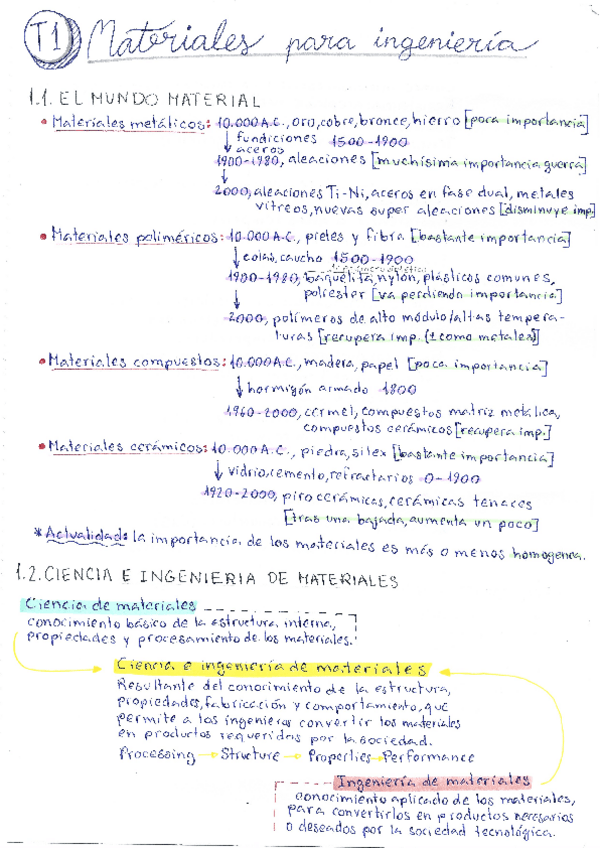 T1 Materiales para ingeniería
1.1. EL MUNDO MATERIAL
• Materiales metálicos: 10.000 A.C., oro, cobre, bronce, hierro [poca importancia]
↓ fundiciones 1500-1900
aceros
1900-1980, aleaciones [muchísima importancia guerra]
↓
2000, aleaciones Ti-Ni, aceros en fase dual, metales
vítreos, nuevas super aleaciones [disminuye imp.]
• Materiales poliméricos: 10.000 A.C., pieles y fibra [bastante importancia]
↓ colas, caucho 1500-1900
1900-1980, baquelita, nylon, plásticos comunes,
poliester [va perdiendo importancia]
↓
2000, polímeros de alto módulo/altas tempera-
turas [recupera imp. (1 como metales)]
• Materiales compuestos: 10.000 A.C., madera, papel [poca importancia]
↓ hormigón armado 1800
1960-2000, cermel, compuestos matriz metálica,
compuestos cerámicos [recupera imp.]
• Materiales cerámicos: 10.000 A.C., piedra, silex [bastante importancia]
↓ vidrio, cemento, refractarios 0-1900
1920-2000, piro cerámicas, cerámicas tenaces
[tras una bajada, aumenta un poco]
* Actualidad: la importancia de los materiales es más o menos homogenea.
1.2. CIENCIA E INGENIERIA DE MATERIALES
Ciencia de materiales
conocimiento básico de la estructura interna,
propiedades y procesamiento de los materiales.
Ciencia e ingeniería de materiales
Resultante del conocimiento de la estructura,
propiedades, fabricación y comportamiento, que
permite a los ingenieros convertir los materiales
en productos requeridos por la sociedad.
Processing → Structure → Properties → Performance
Ingeniería de materiales
conocimiento aplicado de los materiales,
para convertirlos en productos necesarios
o deseados por la sociedad tecnológica.